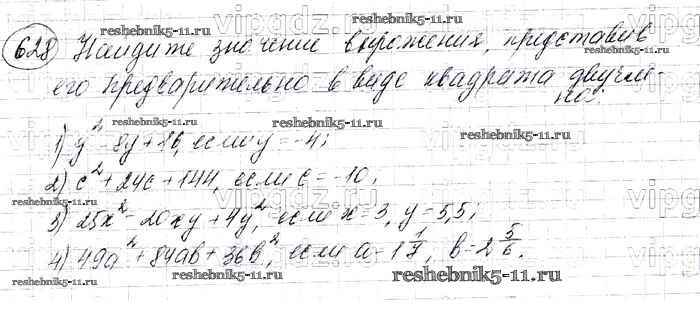 628 Найдите значение выражения, представив
его предварительно в виде квадрата двучле-
на:
1) y² - 8y + 16, если y = -4;
2) c² + 24c + 144, если c = -10;
3) 25x² - 20xy + 4y², если x = 3, y = 5,5;
4) 49a² + 84ab + 36b², если a = 1 1/7, b = 2 5/6.
reshebnik5-11.ru
reshebnik5-11.ru
reshebnik5-11.ru
reshebnik5-11.ru
reshebnik5-11.ru
reshebnik5-11.ru
reshebnik5-11.ru
vipgdz.ru
vipgdz.ru